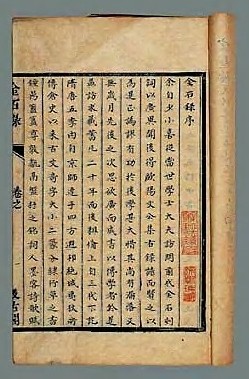 金石錄序
余自少小喜從當世學士大夫訪問前代金石刻
詞以廣異聞後得歐陽文忠公集古錄讀而賢之以
為是正譌謬有功於後學甚大惜其尚有漏落又
無歲月先後之次思欲廣而成書以傳學者於是
益訪求藏蓄凡二十年而後粗備上自三代下訖
隋唐五季內自京師達于四方遐邦絕域夷狄所
傳倉史以來古文奇字大小二篆分隸行草之書
鐘鼎簠簋尊敦甗鬲盤杅之銘詞人墨客詩歌賦
金石錄
卷之